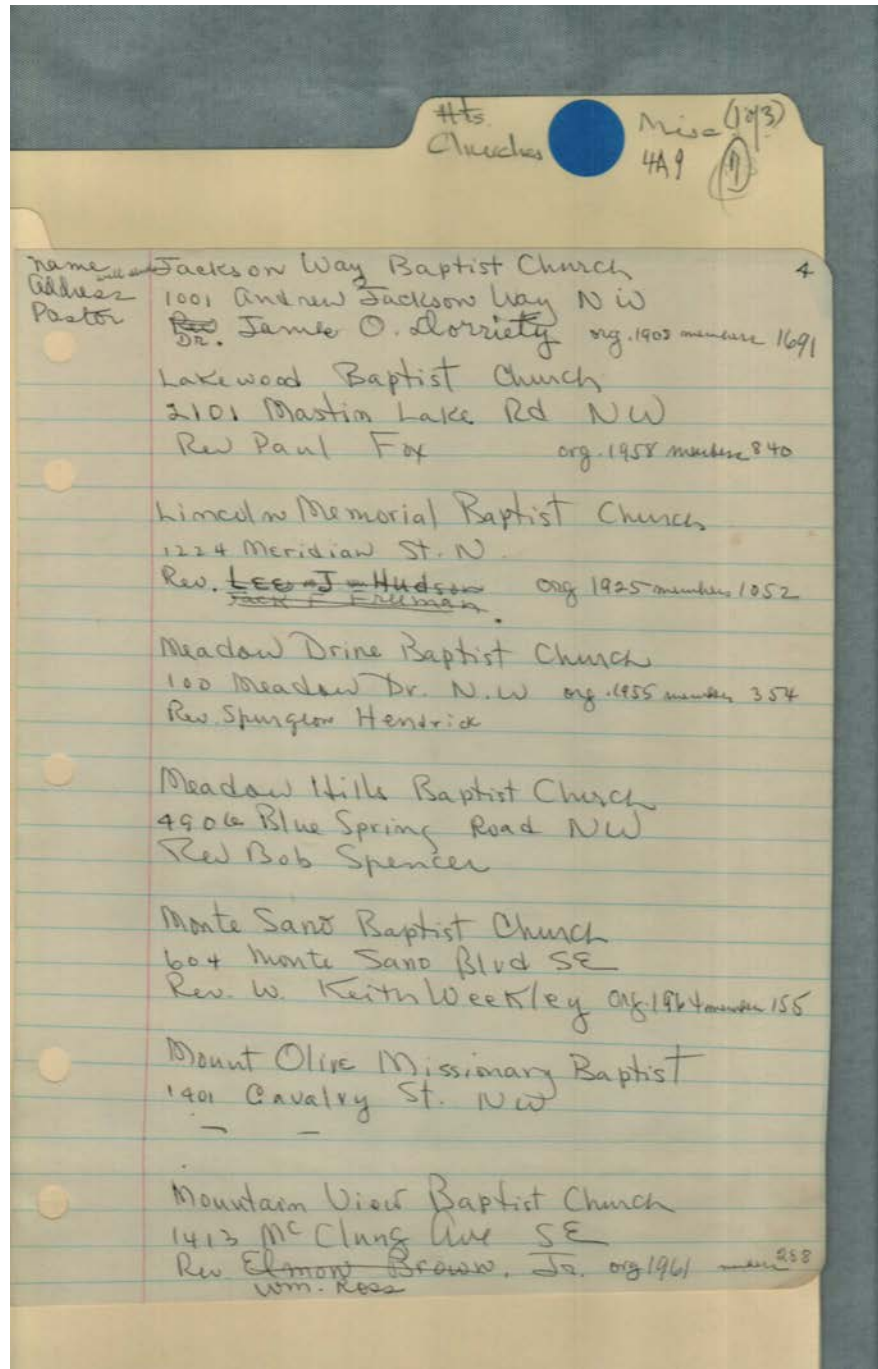 Hts.
Churches
Misc (1 of 3)
4A9
4
name
address
Pastor
Jackson Way Baptist Church
1001 Andrew Jackson Way NW
Rev
Dr. James O. Dorriety org. 1908 members 1691
Lakewood Baptist Church
2101 Mastin Lake Rd NW
Rev Paul Fox org. 1958 members 840
Lincoln Memorial Baptist Church
1224 Meridian St. N.
Rev. Lee J Hudson org 1925 members 1052
Jack F Freeman.
Meadow Drive Baptist Church
100 Meadow Dr. N.W org. 1955 members 354
Rev. Spurgeon Hendrick
Meadow Hills Baptist Church
4906 Blue Spring Road NW
Rev Bob Spencer
Monte Sano Baptist Church
604 Monte Sano Blvd SE
Rev. W. Keith Weekley org. 1964 members 155
Mount Olive Missionary Baptist
1401 Cavalry St. NW
— —
Mountain View Baptist Church
1413 McClung Ave SE
Rev Elmon Brown, Jr. org 1961 members 258
Wm. Ross